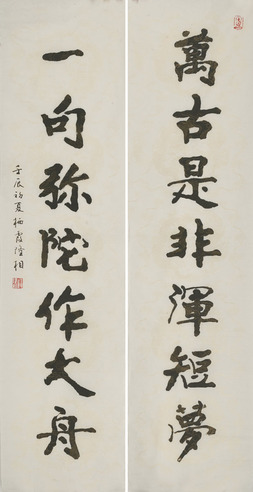 萬古是非渾短夢
一句弥陀作大舟
壬辰初夏栖霞隆相